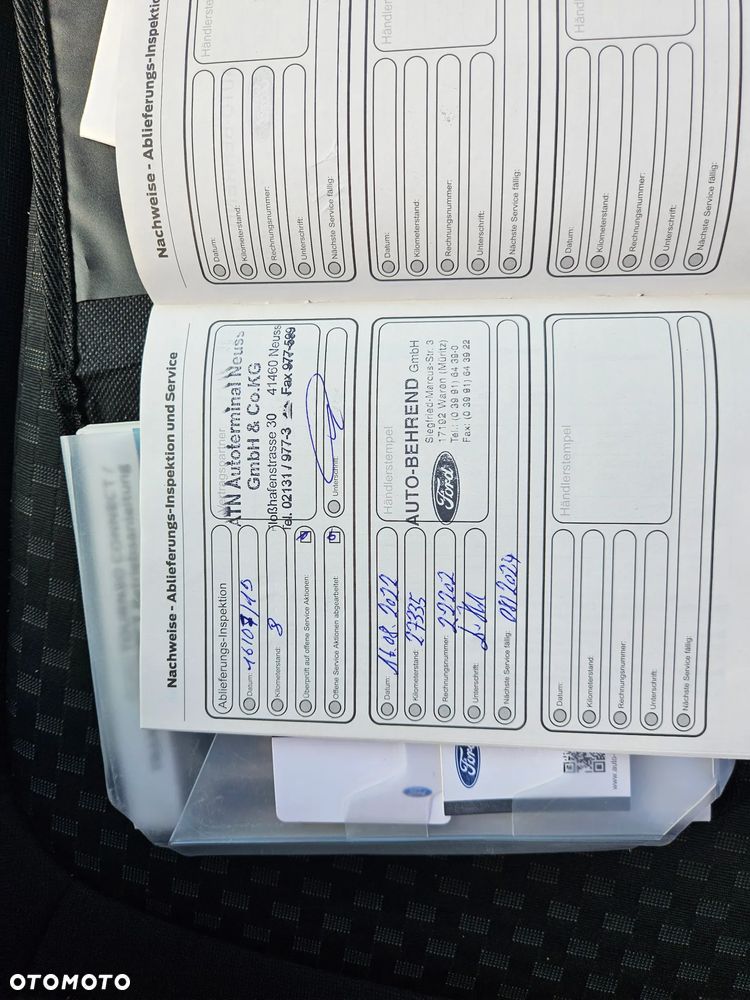 Nachweise - Ablieferungs-Inspektion
Händlerste
Datum:
Kilometerstand:
Rechnungsnummer:
Unterschrift:
Nächste Service fällig:
Händlerst
Datum:
Kilometerstand:
Rechnungsnummer:
Unterschrift:
Nächste Service fällig:
Händ
Datum:
Kilometerstand:
Rechnungsnummer:
Unterschrift:
Nächste Service fällig:
Nachweise - Ablieferungs-Inspektion und Service
Ablieferungs-Inspektion
Datum: 16/07/19
Kilometerstand: 8
Überprüft auf offene Service Aktionen:
Offene Service Aktionen abgearbeitet:
ATN Autoterminal Neuss
GmbH & Co.KG
Floßhafenstrasse 30 41460 Neuss
Tel. 02131 / 977-3 Fax 977-599
Unterschrift:
Datum: 16.08.2022
Kilometerstand: 27335
Rechnungsnummer: 22202
Unterschrift:
Nächste Service fällig: 08/2024
Händlerstempel
AUTO-BEHREND GmbH
Ford
Siegfried-Marcus-Str. 3
17192 Waren (Müritz)
Tel.: (0 39 91) 64 39-0
Fax: (0 39 91) 64 39 22
Händlerstempel
Datum:
Kilometerstand:
Rechnungsnummer:
Unterschrift:
Nächste Service fällig:
Ford
www.auto-
OTOMOTO